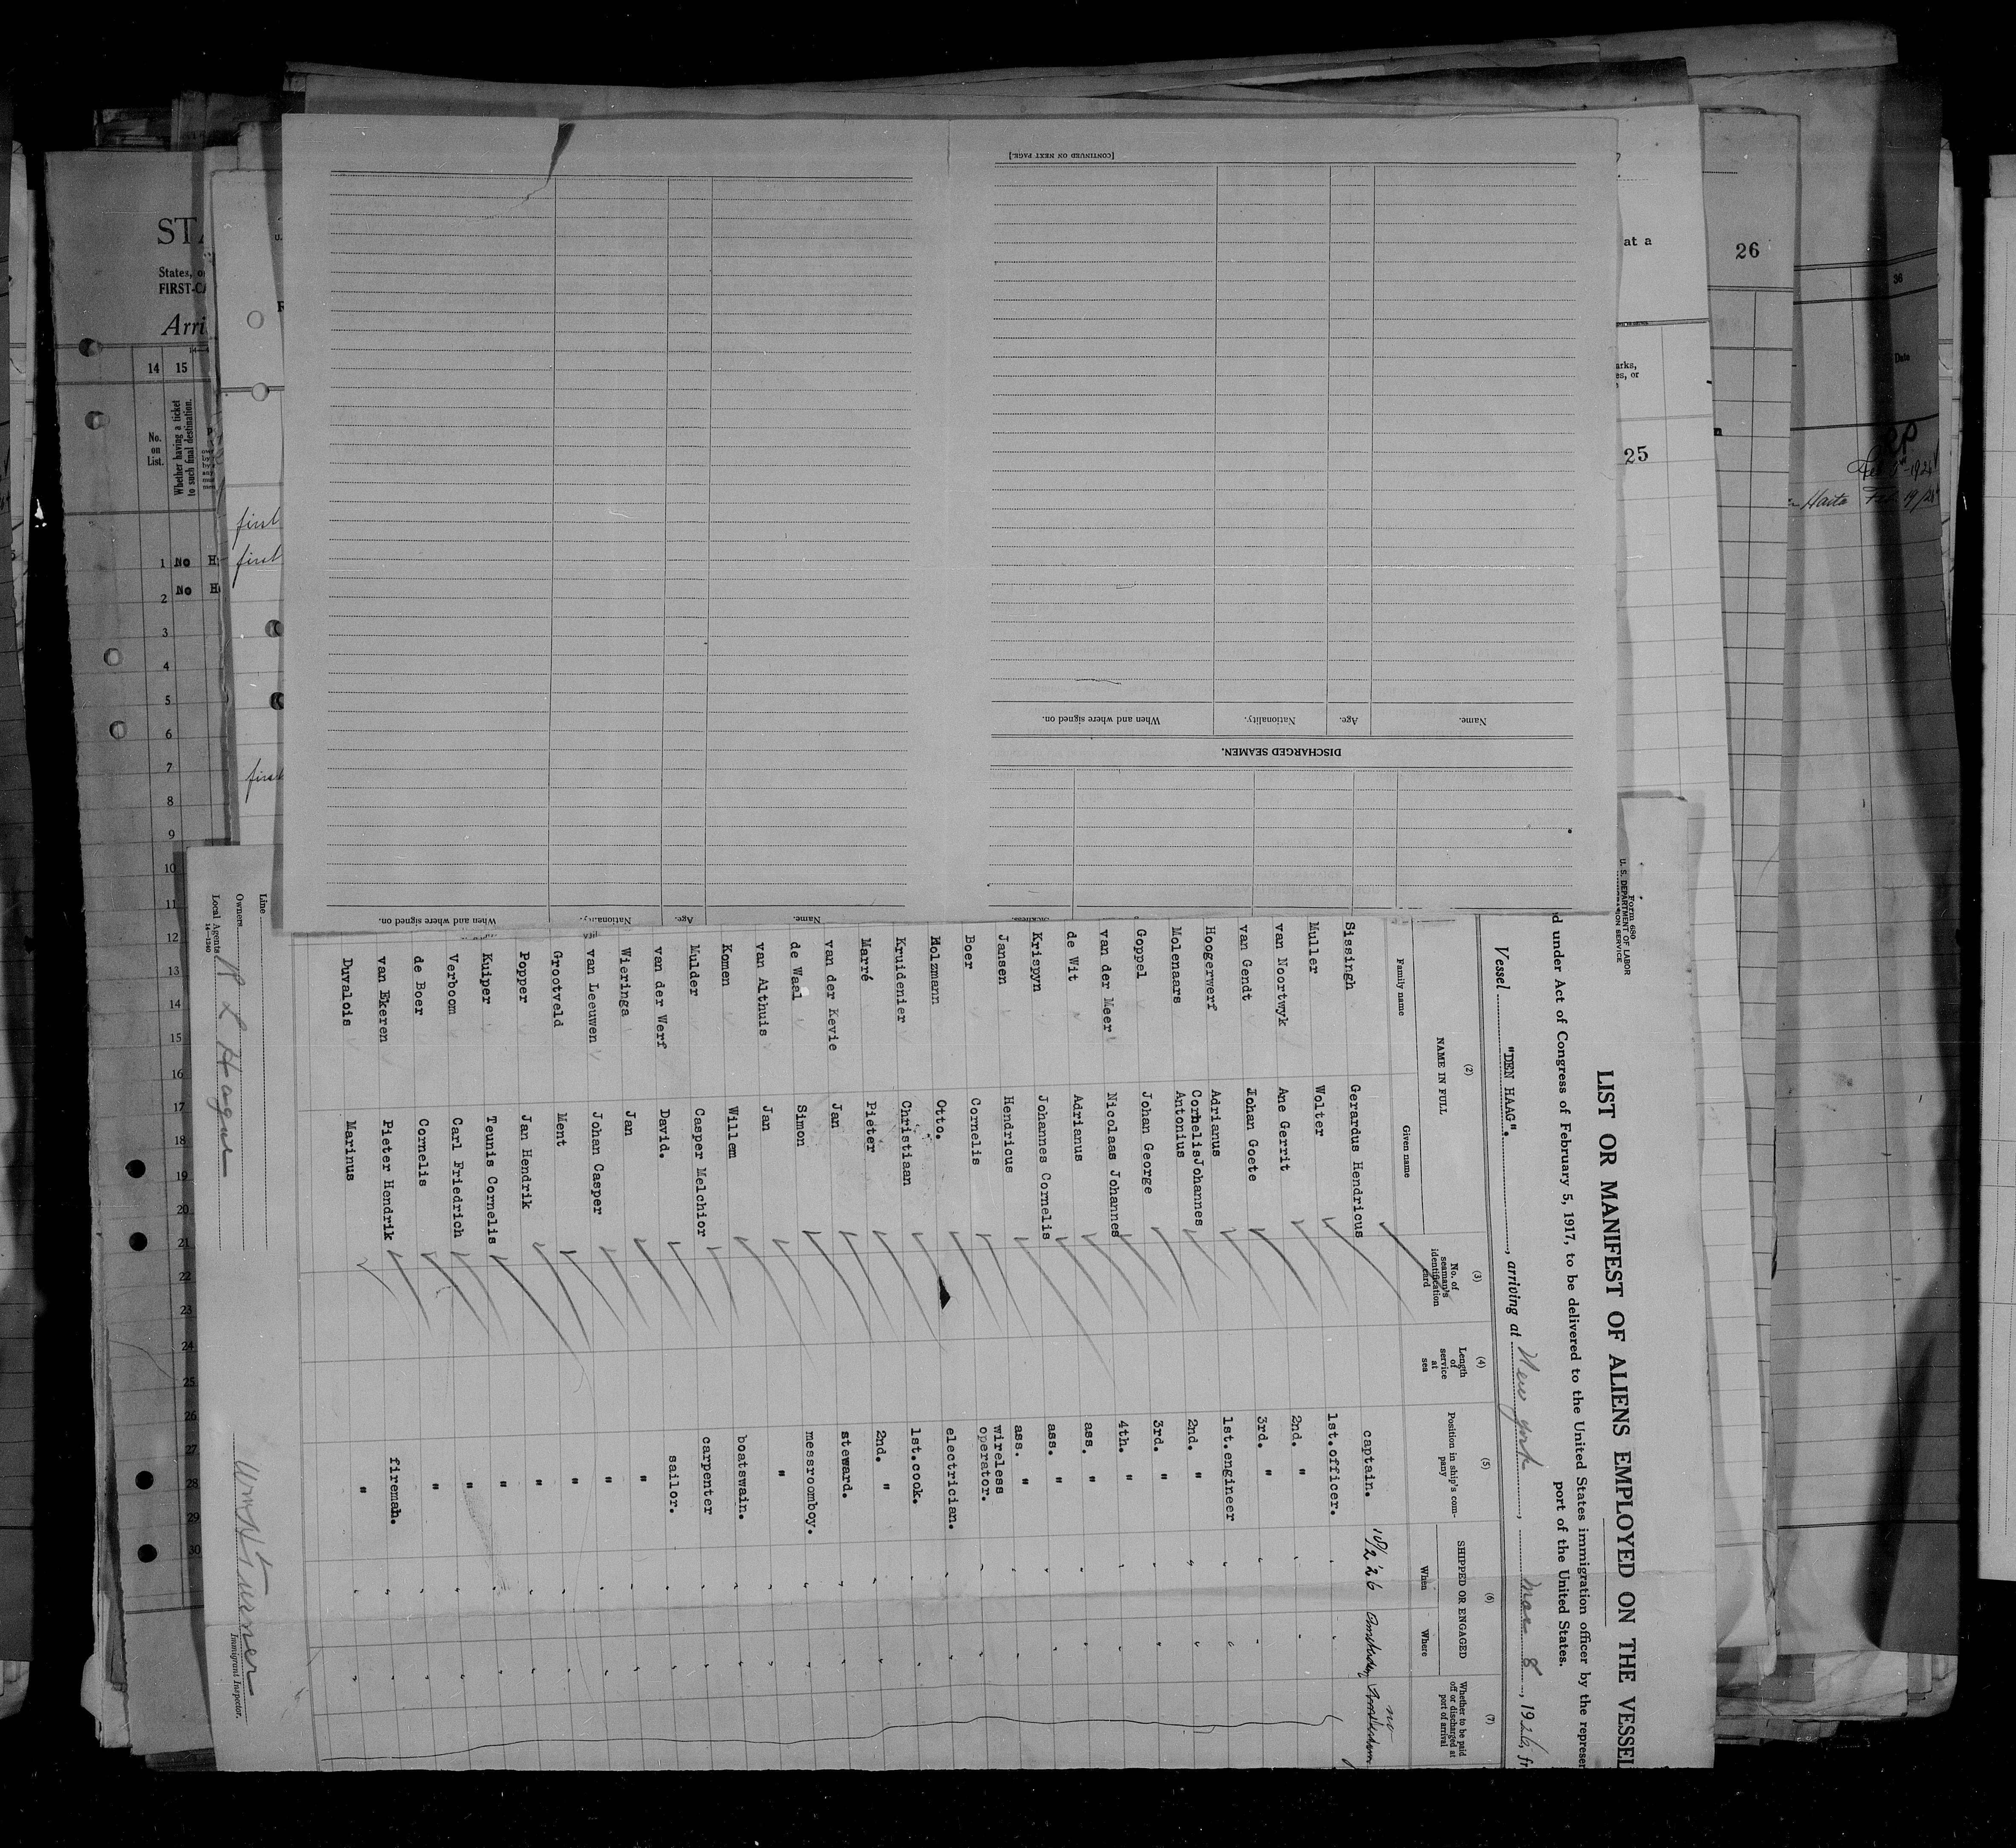 Form 680
U. S. DEPARTMENT OF LABOR
LIST OR MANIFEST OF ALIENS EMPLOYED ON THE VESSEL
under Act of Congress of February 5, 1917, to be delivered to the United States immigration officer by the
port of the United States.
Vessel "DEN HAAG". , arriving at New York , Mar 8 , 1926,
(2) (3) (4) (5) (6) (7)
NAME IN FULL
Family name Given name
No. of seaman's identification card
Length of service at sea
Position in ship's company
SHIPPED OR ENGAGED
When Where
Whether to be paid off or discharged at port of arrival
Sissingh Gerardus Hendricus captain. 10/2 '26 Amsterdam no
Muller Wolter 1st.officer.
van Noortwyk Ane Gerrit 2nd. "
van Gendt Johan Goete 3rd. "
Hoogerwerf Adrianus Cornelis Johannes 1st.engineer
Molenaars Antonius 2nd. "
Goppel Johan George 3rd. "
van der Meer Nicolaas Johannes 4th. "
de Wit Adrianus ass. "
Krispyn Johannes Cornelis ass. "
Jansen Hendricus ass. "
Boer Cornelis wireless operator.
Holzmann Otto. electrician.
Kruidenier Christiaan 1st.cook.
Marré Pieter 2nd. "
van der Kevie Jan steward.
de Waal Simon messroomboy.
van Althuis Jan "
Komen Willem boatswain.
Mulder Casper Melchior carpenter
van der Werf David. sailor.
Wieringa Jan "
van Leeuwen Johan Casper "
Grootveld Ment "
Popper Jan Hendrik "
Kuiper Teunis Cornelis "
Verboom Carl Friedrich "
de Boer Cornelis "
van Ekeren Pieter Hendrik fireman.
Duvalois Marinus "
Line
Owners
Local Agents R L Hague
14—1240
Wm H Turner
Immigrant Inspector.
[CONTINUED ON NEXT PAGE.]
DISCHARGED SEAMEN.
Name. Age. Nationality. When and where signed on.
Name. Age. Nationality. When and where signed on.
STA
States, o
FIRST-CA
Arri
14 15
No. on List.
Whether having a ticket to such final destination.
1 No H
2 No H
3
4
5
6
7
8
9
10
11
12
13
14
15
16
17
18
19
20
21
22
23
24
25
26
27
28
29
30
first
first
first
at a
arks,
es, or
25
26
36
Date